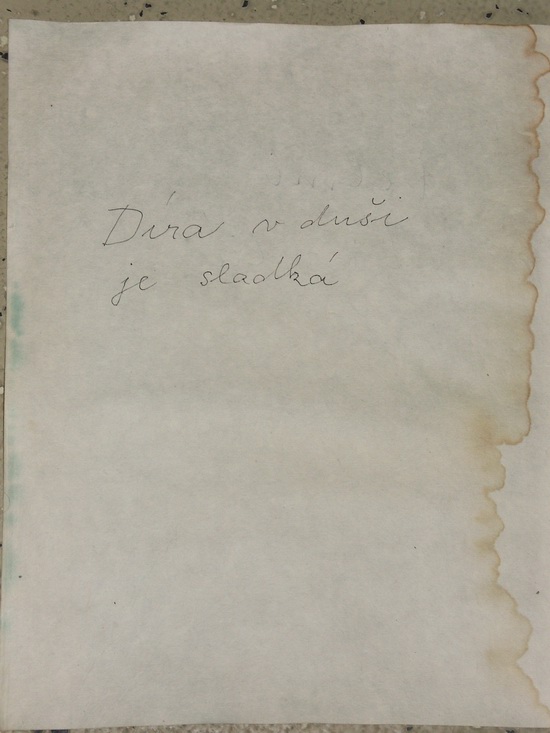 Díra v duši
je sladká